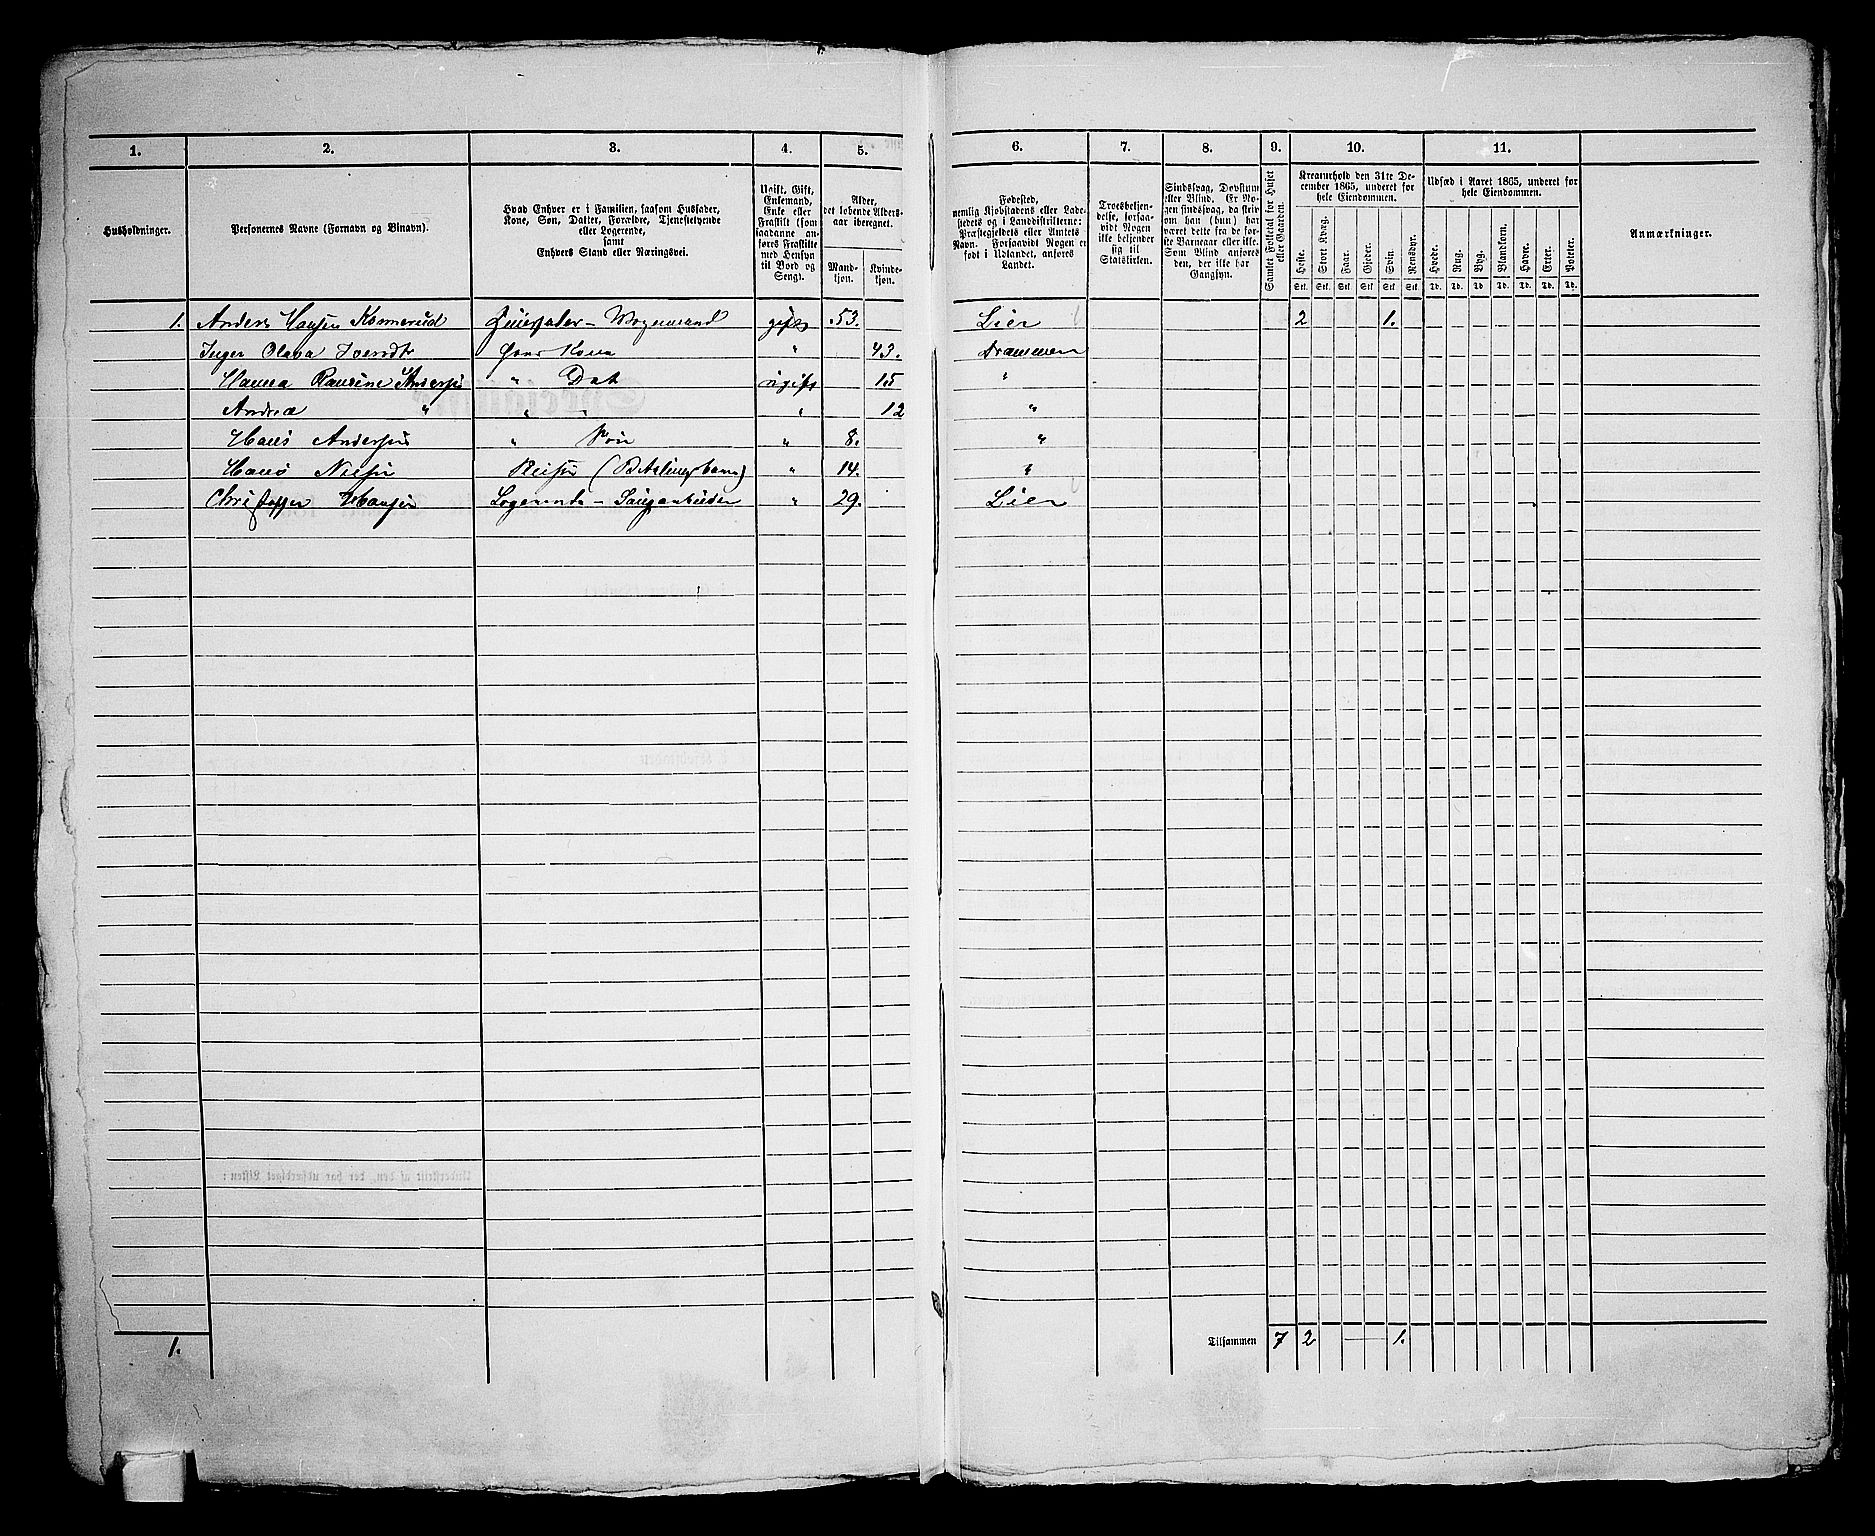 1. 2. 3. 4. 5. 6. 7. 8. 9. 10. 11.
Husholdninger.
Personernes Navne (Fornavn og Binavn).
Hvad Enhver er i Familien, saasom Husfader,
Kone, Søn, Datter, Forældre, Tjenestetyende
eller Logerende,
samt
Enhvers Stand eller Næringsvei.
Ugift, Gift,
Enkemand,
Enke eller
Fraskilt (som
saadanne an-
føres Fraskilte
med Hensyn
til Bord og
Seng).
Alder,
det løbende Alders-
aar iberegnet.
Mand-
kjøn.
Kvinde-
kjøn.
Fødested,
nemlig Kjøbstadens eller Lade-
stedets og i Landdistrikterne:
Præstegjeldets eller Amtets
Navn. Forsaavidt Nogen er
født i Udlandet, anføres
Landet.
Troesbekjen-
delse, forsaa-
vidt Nogen
ikke bekjender
sig til
Statskirken.
Sindssvag, Døvstum
eller Blind. Er No-
gen sindssvag, da skriv
om han (hun) har
været dette fra de før-
ste Barneaar eller ikke.
Som Blind anføres
den, der ikke har
Gangsyn.
Samlet Folketal for Huset
eller Gaarden.
Kreaturhold den 31te De-
cember 1865, underet for
hele Eiendommen.
Heste. Stort Kvæg. Faar. Gjeder. Svin. Rensdyr.
Stk. Stk. Stk. Stk. Stk. Stk.
Udsæd i Aaret 1865, underet for
hele Eiendommen.
Hvede. Rug. Byg. Blandkorn. Havre. Erter. Poteter.
Td. Td. Td. Td. Td. Td. Td.
Anmærkninger.
1. Anders Hansen Komnerud Huusfader - Vogenmand gift 53. Lier 2 1.
Inger Olava hans Kone " 43. Drammen
Hanna Andersen " Dat ugift 15 "
Andrea " " " " 12 "
Hans Andersen " Søn " 8. "
Hans Nielsen " 14. "
Christopher Hansen Logerende - Saugarbeider " 29. Lier
1. Tilsammen 7 2 — 1.